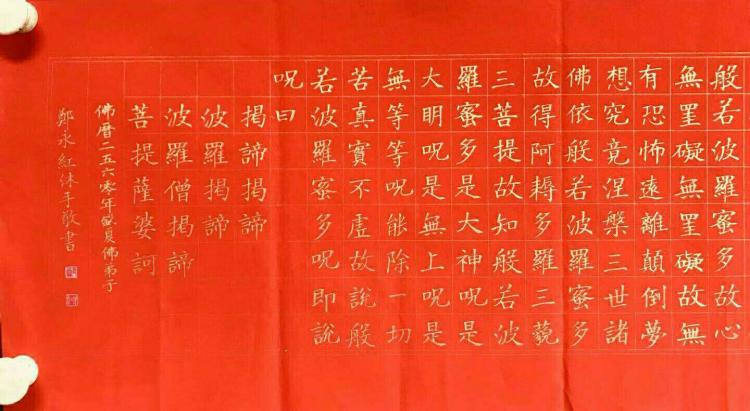 般若波羅蜜多故心
無罣礙無罣礙故無
有恐怖遠離顛倒夢
想究竟涅槃三世諸
佛依般若波羅蜜多
故得阿耨多羅三藐
三菩提故知般若波
羅蜜多是大神呪是
大明呪是無上呪是
無等等呪能除一切
苦真實不虛故說般
若波羅蜜多呪即說
呪曰
揭諦揭諦
波羅揭諦
波羅僧揭諦
菩提薩婆訶
佛曆二五六零年夏佛弟子
鄭永紅沐手敬書